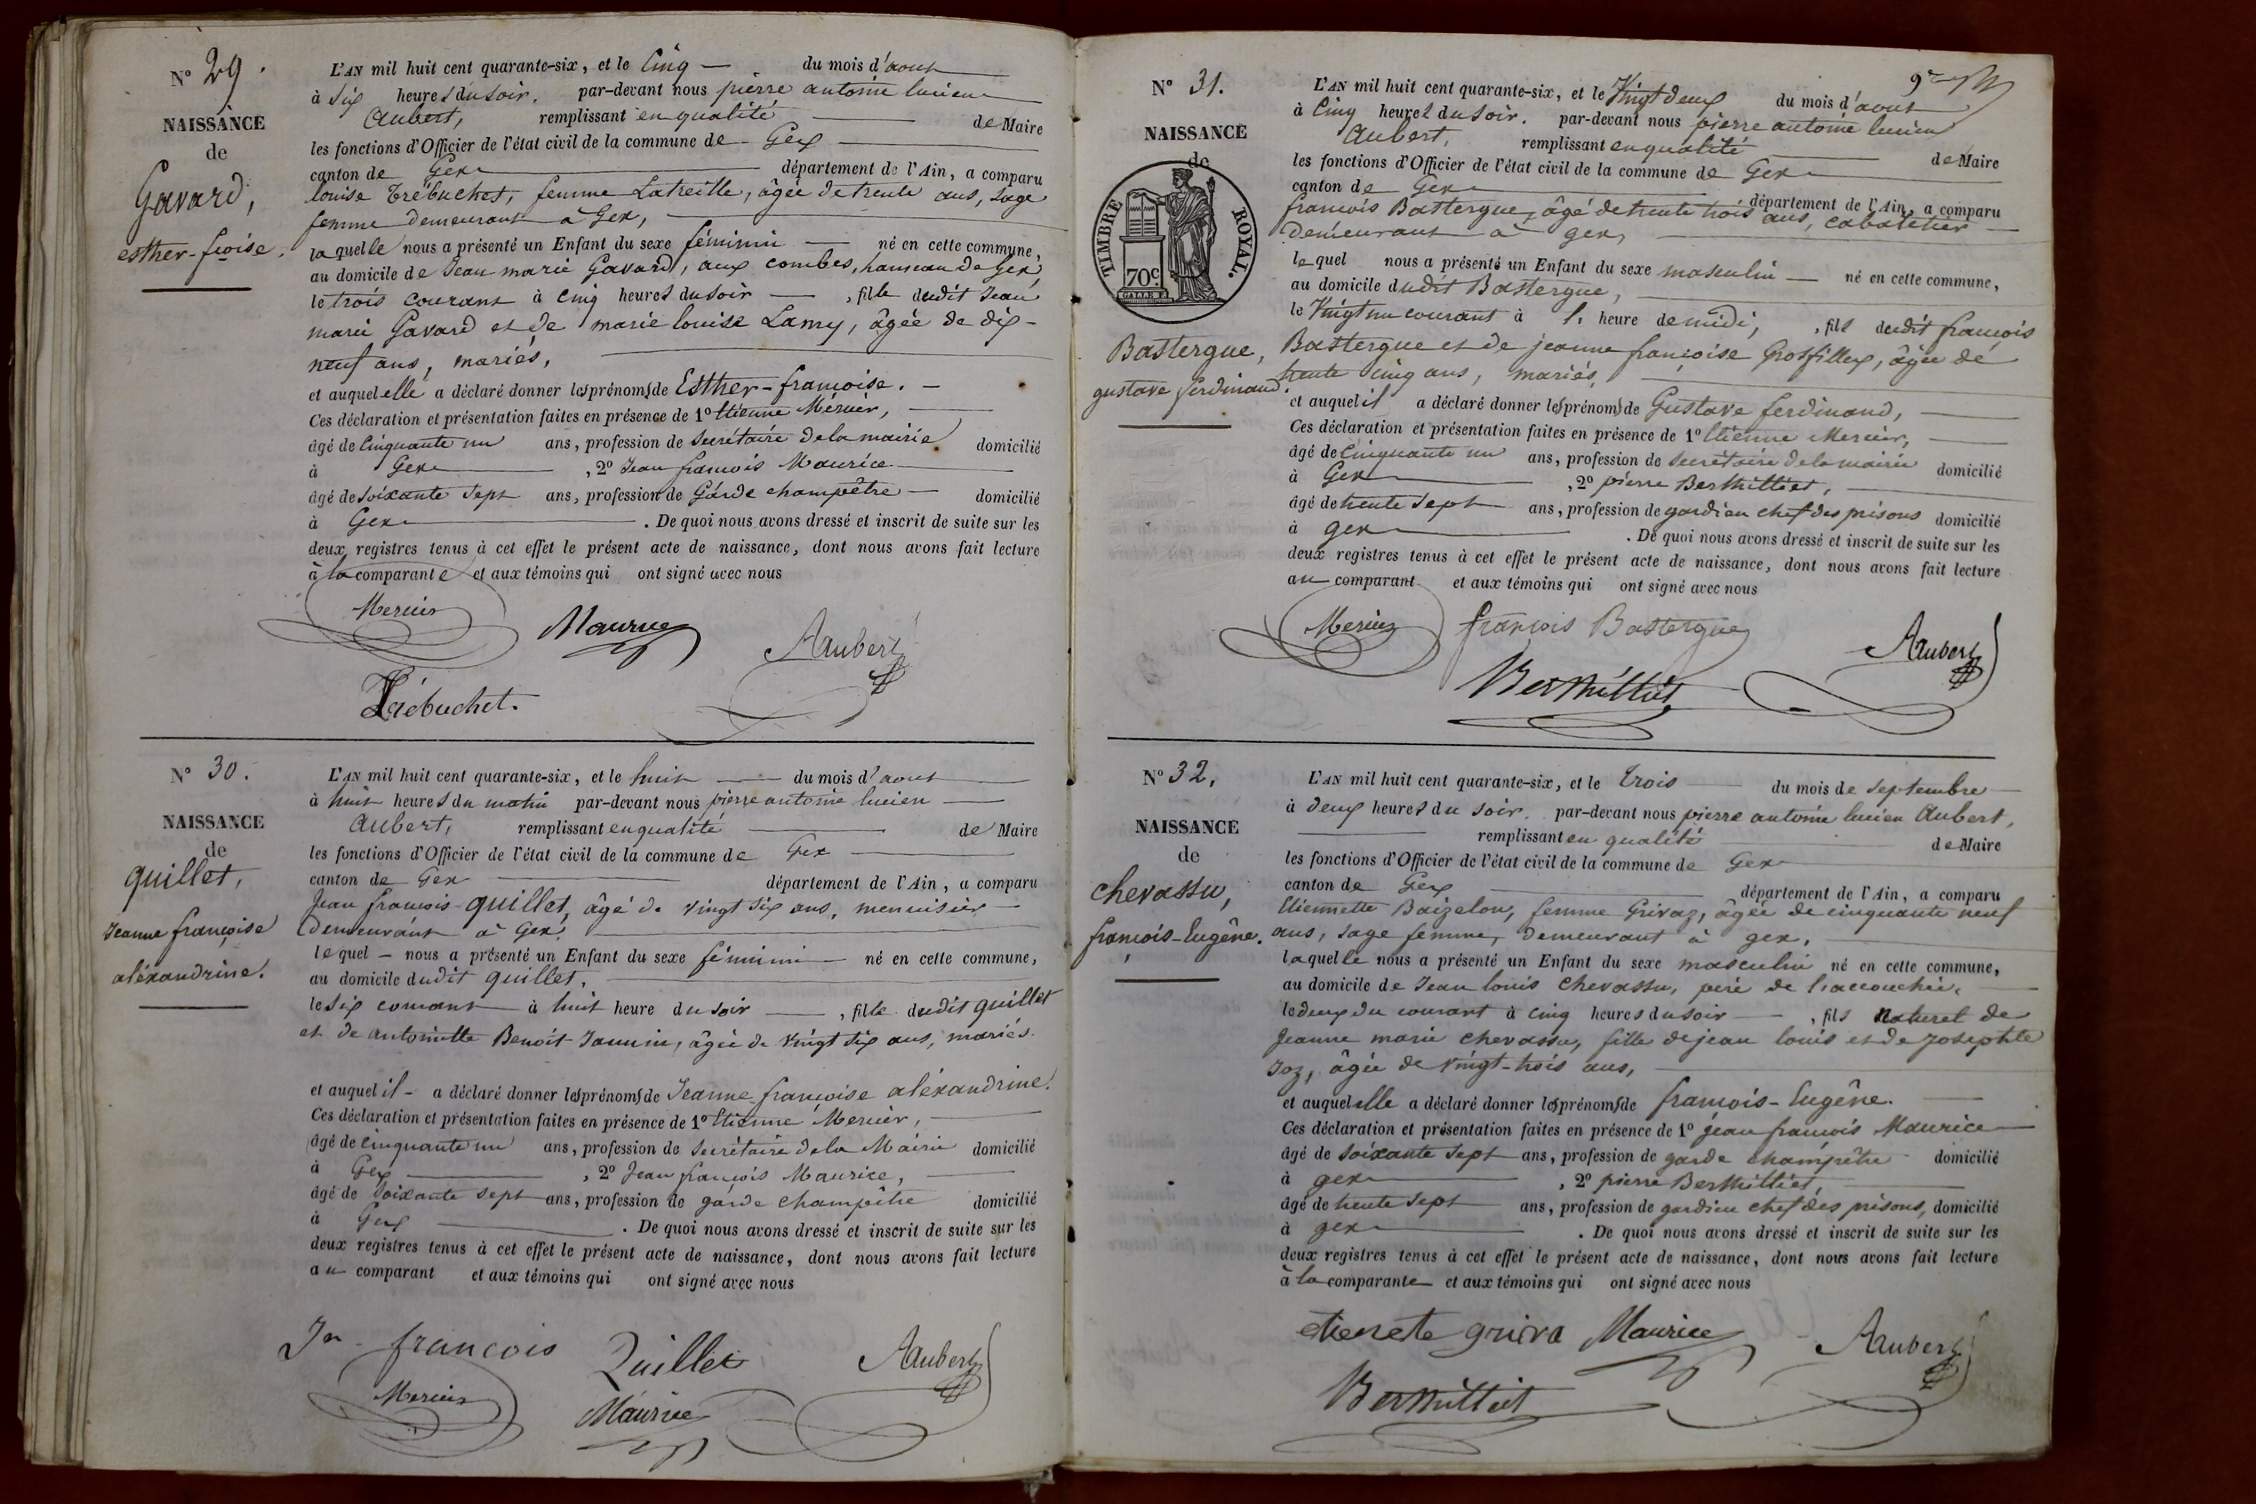 N° 29.
NAISSANCE
de
Gavard,
esther-fçoise.
L'AN mil huit cent quarante-six, et le Cinq du mois d'aout
à Six heures du soir. par-devant nous pierre antoine lucien
Aubert, remplissant en qualité de Maire
les fonctions d'Officier de l'état civil de la commune de Gex
canton de Gex département de l'Ain, a comparu
louise Trébuchet, femme Latreille, âgée de trente ans, sage
femme demeurant à Gex,
laquelle nous a présenté un Enfant du sexe féminin né en cette commune,
au domicile de Jean marie Gavard, aux combes, hameau de Gex,
le trois courant à cinq heures du soir, fille dudit Jean
marie Gavard et de marie louise Lamy, âgée de dix-
neuf ans, mariés,
et auquel elle a déclaré donner les prénoms de Esther-françoise.
Ces déclaration et présentation faites en présence de 1° Etienne Mercier,
âgé de Cinquante un ans, profession de Secrétaire de la mairie domicilié
à Gex, 2° Jean françois Maurice
âgé de soixante sept ans, profession de Garde champêtre domicilié
à Gex. De quoi nous avons dressé et inscrit de suite sur les
deux registres tenus à cet effet le présent acte de naissance, dont nous avons fait lecture
à la comparante et aux témoins qui ont signé avec nous
Mercier Maurice Aubert
Trébuchet.
N° 30.
NAISSANCE
de
quillet,
Jeanne françoise
aléxandrine.
L'AN mil huit cent quarante-six, et le huit du mois d'aout
à huit heures du matin par-devant nous pierre antoine lucien
Aubert, remplissant en qualité de Maire
les fonctions d'Officier de l'état civil de la commune de Gex
canton de Gex département de l'Ain, a comparu
Jean françois quillet, âgé de vingt six ans, menuisier
demeurant à Gex,
lequel nous a présenté un Enfant du sexe féminin né en cette commune,
au domicile dudit quillet,
le six courant à huit heure du soir, fille dudit quillet
et de antoinette Benoit-Jannin, âgée de vingt six ans, mariés.
et auquel il a déclaré donner les prénoms de Jeanne françoise aléxandrine.
Ces déclaration et présentation faites en présence de 1° Etienne Mercier,
âgé de cinquante un ans, profession de Secrétaire de la Mairie domicilié
à Gex, 2° Jean françois Maurice,
âgé de soixante sept ans, profession de garde champêtre domicilié
à Gex. De quoi nous avons dressé et inscrit de suite sur les
deux registres tenus à cet effet le présent acte de naissance, dont nous avons fait lecture
au comparant et aux témoins qui ont signé avec nous
Jn françois Quillet Aubert
Mercier Maurice
N° 31.
NAISSANCE
de
TIMBRE ROYAL.
70c
Bastergue,
gustave ferdinand.
L'AN mil huit cent quarante-six, et le Vingt deux du mois d'aout
à Cinq heures du soir. par-devant nous pierre antoine lucien
Aubert, remplissant en qualité de Maire
les fonctions d'Officier de l'état civil de la commune de Gex
canton de Gex département de l'Ain, a comparu
françois Bastergue, âgé de trente trois ans, cabaretier
demeurant à gex,
lequel nous a présenté un Enfant du sexe masculin né en cette commune,
au domicile dudit Bastergue,
le Vingt un courant à 1. heure de midi, fils dudit françois
Bastergue et de jeanne françoise Grosfillex, âgée de
trente cinq ans, mariés,
et auquel il a déclaré donner les prénoms de Gustave ferdinand,
Ces déclaration et présentation faites en présence de 1° Etienne Mercier,
âgé de Cinquante un ans, profession de secrétaire de la mairie domicilié
à Gex, 2° pierre Berthilliet,
âgé de trente sept ans, profession de gardien chef des prisons domicilié
à gex. De quoi nous avons dressé et inscrit de suite sur les
deux registres tenus à cet effet le présent acte de naissance, dont nous avons fait lecture
au comparant et aux témoins qui ont signé avec nous
Mercier françois Bastergue Aubert
Berthilliet
N° 32,
NAISSANCE
de
chevassu,
françois-Eugêne.
L'AN mil huit cent quarante-six, et le trois du mois de septembre
à deux heures du soir. par-devant nous pierre antoine lucien Aubert,
remplissant en qualité de Maire
les fonctions d'Officier de l'état civil de la commune de Gex
canton de Gex département de l'Ain, a comparu
Etiennette Baizelon, femme Grivaz, âgée de cinquante neuf
ans, sage femme, demeurant à gex,
laquelle nous a présenté un Enfant du sexe masculin né en cette commune,
au domicile de Jean louis Chevassu, père de l'accouchée,
le deux du courant à cinq heures du soir, fils naturel de
Jeanne marie chevassu, fille de jean louis et de Josephte
Joz, âgée de vingt-trois ans,
et auquel elle a déclaré donner les prénoms de françois-Eugêne.
Ces déclaration et présentation faites en présence de 1° jean françois Maurice
âgé de soixante sept ans, profession de garde champêtre domicilié
à gex, 2° pierre Berthilliet
âgé de trente sept ans, profession de gardien chef des prisons, domicilié
à gex. De quoi nous avons dressé et inscrit de suite sur les
deux registres tenus à cet effet le présent acte de naissance, dont nous avons fait lecture
à la comparante et aux témoins qui ont signé avec nous
etienete griva Maurice Aubert
Berthilliet